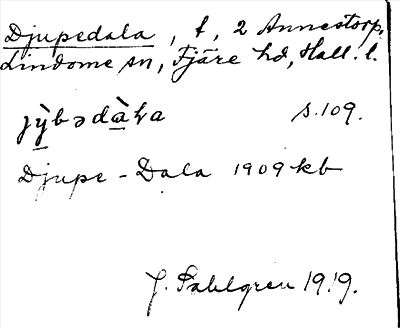 Djupedala, t, 2 Annestorp,
Lindome sn, Fjäre hd, Hall. l.
jỳ̠bədà̠ɬa s. 109.
Djupe-Dala 1909 kb
J. Sahlgren 1919.